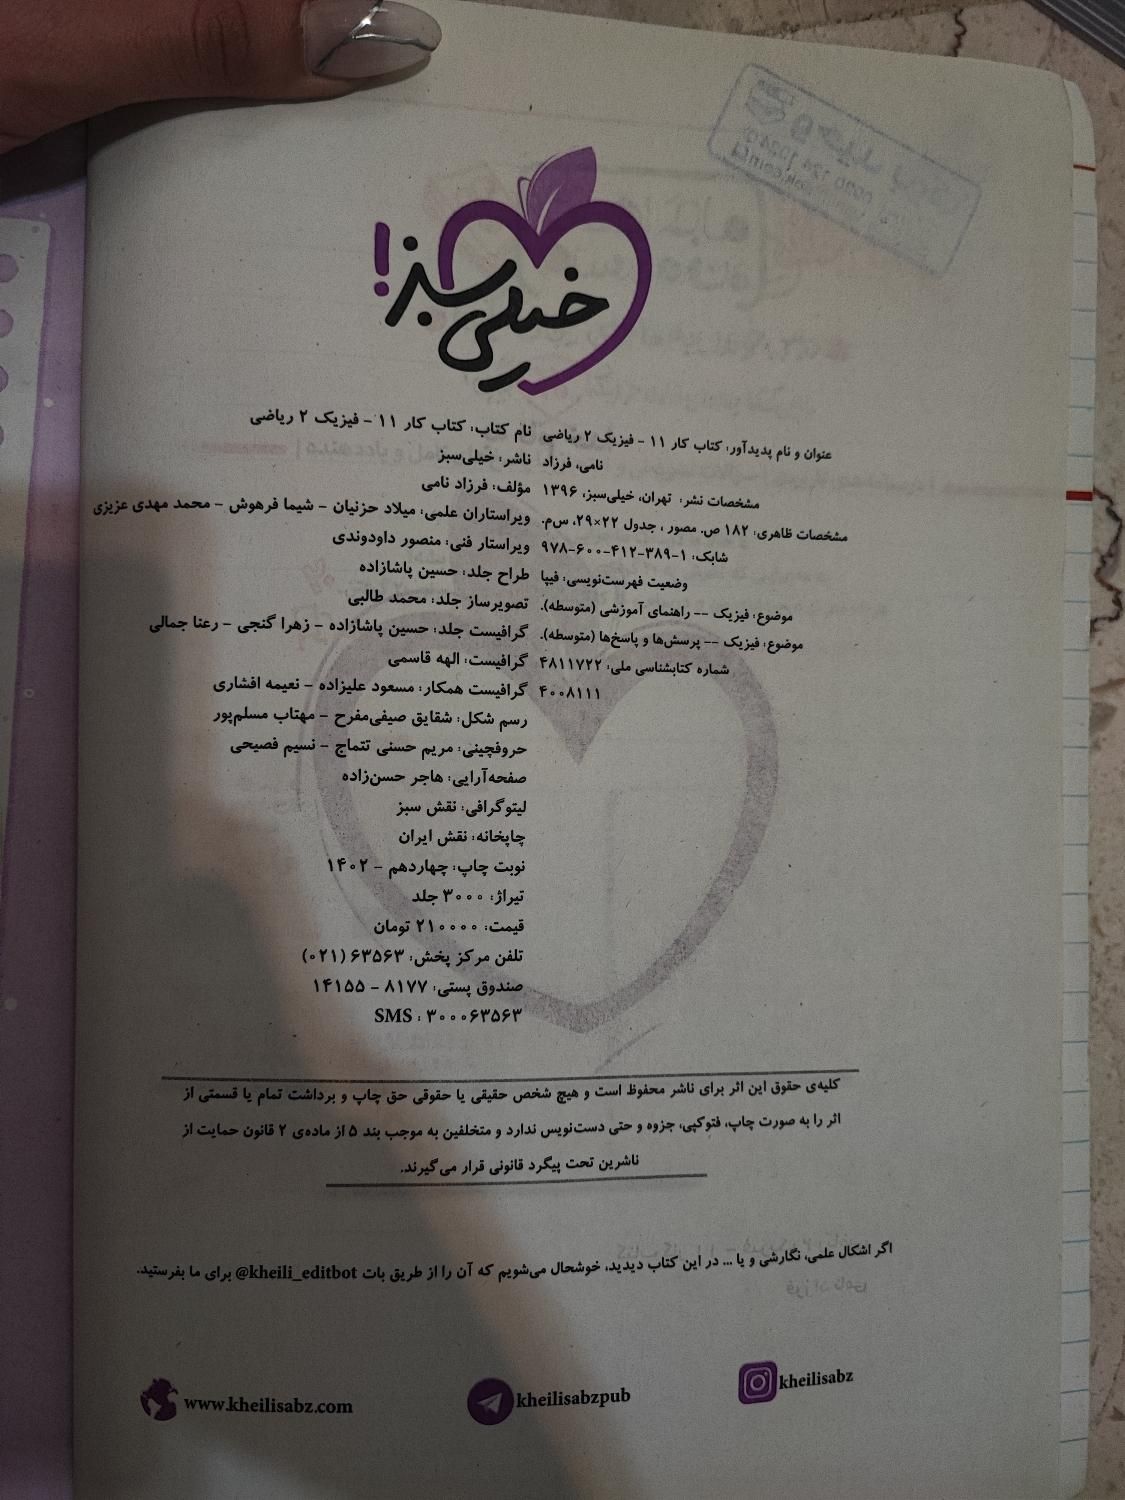 خیلی سبز!
عنوان و نام پدیدآور: کتاب کار ۱۱ – فیزیک ۲ ریاضی
نامی، فرزاد
مشخصات نشر: تهران، خیلی‌سبز، ۱۳۹۶
مشخصات ظاهری: ۱۸۲ ص. مصور ، جدول ۲۲×۲۹، س‌م.
شابک: ۱-۳۸۹-۴۱۲-۶۰۰-۹۷۸
وضعیت فهرست‌نویسی: فیپا
موضوع: فیزیک -- راهنمای آموزشی (متوسطه).
موضوع: فیزیک -- پرسش‌ها و پاسخ‌ها (متوسطه).
شماره کتابشناسی ملی: ۴۸۱۱۷۲۲
۴۰۰۸۱۱۱
نام کتاب: کتاب کار ۱۱ – فیزیک ۲ ریاضی
ناشر: خیلی‌سبز
مؤلف: فرزاد نامی
ویراستاران علمی: میلاد حزنیان – شیما فرهوش – محمد مهدی عزیزی
ویراستار فنی: منصور داودوندی
طراح جلد: حسین پاشازاده
تصویرساز جلد: محمد طالبی
گرافیست جلد: حسین پاشازاده – زهرا گنجی – رعنا جمالی
گرافیست: الهه قاسمی
گرافیست همکار: مسعود علیزاده – نعیمه افشاری
رسم شکل: شقایق صیفی‌مفرح – مهتاب مسلم‌پور
حروفچینی: مریم حسنی تتماج – نسیم فصیحی
صفحه‌آرایی: هاجر حسن‌زاده
لیتوگرافی: نقش سبز
چاپخانه: نقش ایران
نوبت چاپ: چهاردهم – ۱۴۰۲
تیراژ: ۳۰۰۰ جلد
قیمت: ۲۱۰۰۰۰ تومان
تلفن مرکز پخش: ۶۳۵۶۳ (۰۲۱)
صندوق پستی: ۸۱۷۷ – ۱۴۱۵۵
SMS : ۳۰۰۰۶۳۵۶۳
کلیه‌ی حقوق این اثر برای ناشر محفوظ است و هیچ شخص حقیقی یا حقوقی حق چاپ و برداشت تمام یا قسمتی از
اثر را به صورت چاپ، فتوکپی، جزوه و حتی دست‌نویس ندارد و متخلفین به موجب بند ۵ از ماده‌ی ۲ قانون حمایت از
ناشرین تحت پیگرد قانونی قرار می‌گیرند.
اگر اشکال علمی، نگارشی و یا ... در این کتاب دیدید، خوشحال می‌شویم که آن را از طریق بات @kheili_editbot برای ما بفرستید.
www.kheilisabz.com
kheilisabzpub
kheilisabz